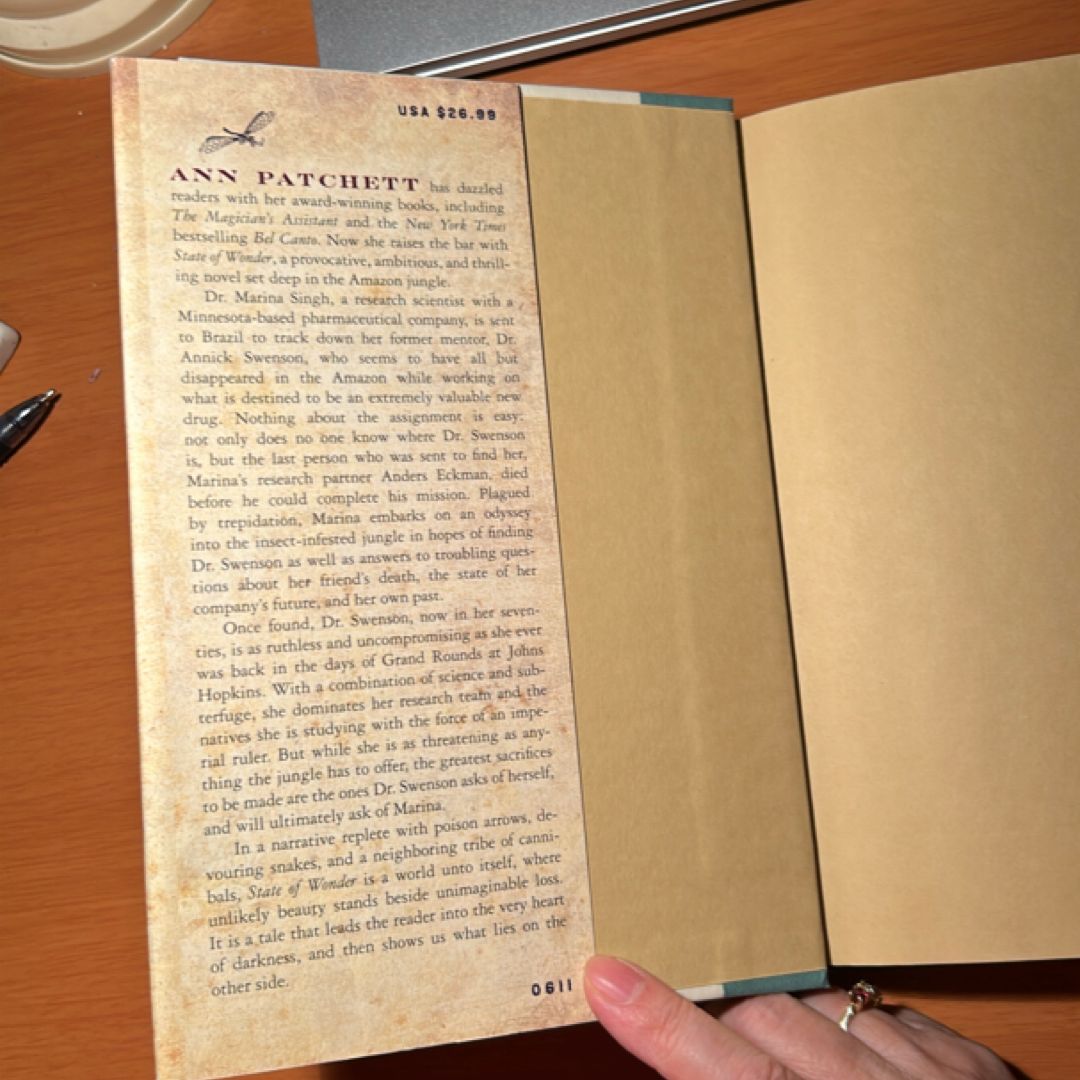 USA $26.99
ANN PATCHETT has dazzled
readers with her award-winning books, including
The Magician's Assistant and the New York Times
bestselling Bel Canto. Now she raises the bar with
State of Wonder, a provocative, ambitious, and thrill-
ing novel set deep in the Amazon jungle.
Dr. Marina Singh, a research scientist with a
Minnesota-based pharmaceutical company, is sent
to Brazil to track down her former mentor, Dr.
Annick Swenson, who seems to have all but
disappeared in the Amazon while working on
what is destined to be an extremely valuable new
drug. Nothing about the assignment is easy:
not only does no one know where Dr. Swenson
is, but the last person who was sent to find her,
Marina's research partner Anders Eckman, died
before he could complete his mission. Plagued
by trepidation, Marina embarks on an odyssey
into the insect-infested jungle in hopes of finding
Dr. Swenson as well as answers to troubling ques-
tions about her friend's death, the state of her
company's future, and her own past.
Once found, Dr. Swenson, now in her seven-
ties, is as ruthless and uncompromising as she ever
was back in the days of Grand Rounds at Johns
Hopkins. With a combination of science and sub-
terfuge, she dominates her research team and the
natives she is studying with the force of an impe-
rial ruler. But while she is as threatening as any-
thing the jungle has to offer, the greatest sacrifices
to be made are the ones Dr. Swenson asks of herself,
and will ultimately ask of Marina.
In a narrative replete with poison arrows, de-
vouring snakes, and a neighboring tribe of canni-
bals, State of Wonder is a world unto itself, where
unlikely beauty stands beside unimaginable loss.
It is a tale that leads the reader into the very heart
of darkness, and then shows us what lies on the
other side.
0611